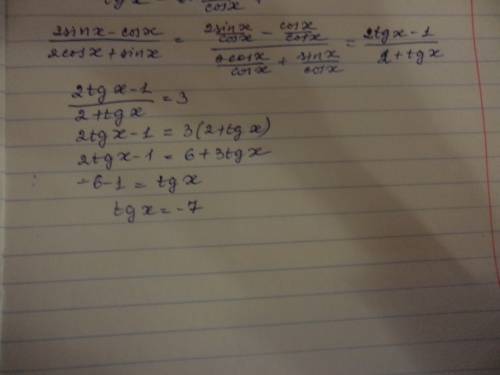 tgx
cosx
2sinx - cosx / 2cosx + sinx = (2sinx/cosx - cosx/cosx) / (2cosx/cosx + sinx/cosx) = 2tgx - 1 / 2 + tgx
2tgx - 1 / 2 + tgx = 3
2tgx - 1 = 3(2 + tgx)
2tgx - 1 = 6 + 3tgx
-6 - 1 = tgx
tgx = -7